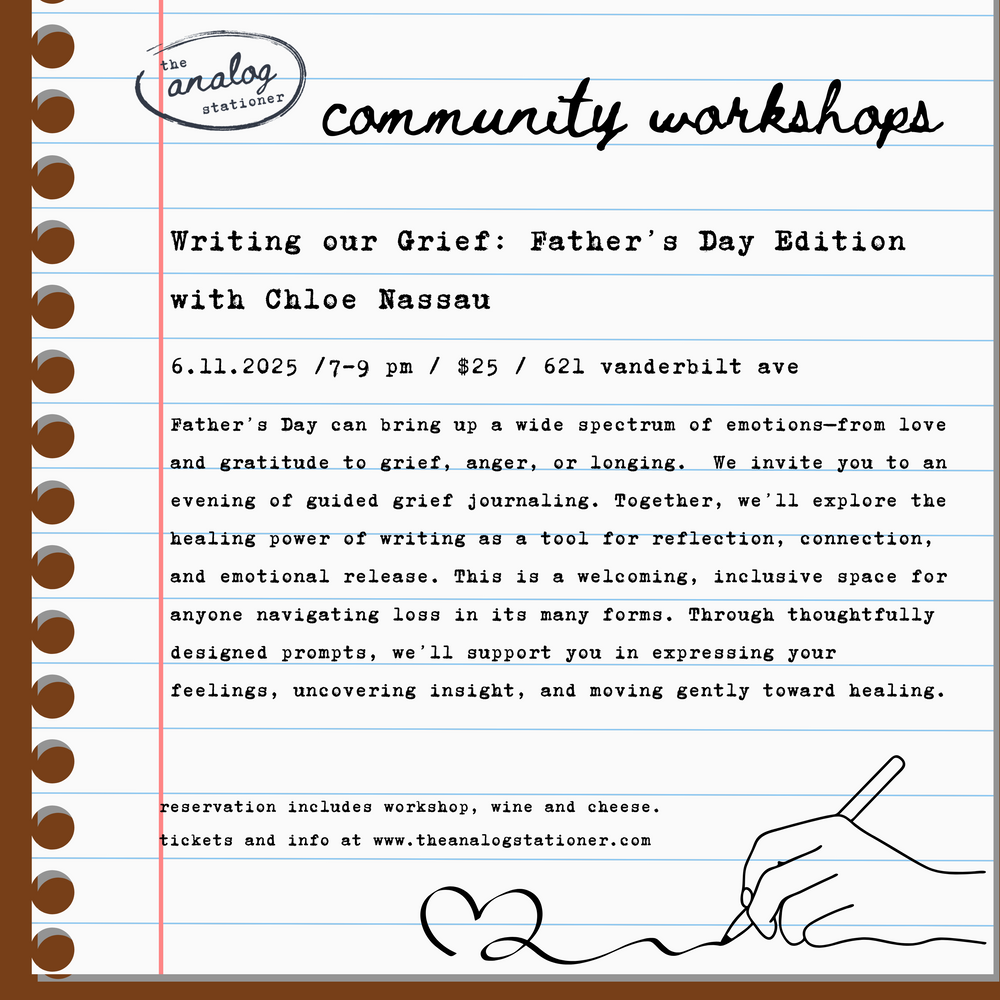 the
analog
stationer
community workshops
Writing our Grief: Father's Day Edition
with Chloe Nassau
6.11.2025 /7-9 pm / $25 / 621 vanderbilt ave
Father's Day can bring up a wide spectrum of emotions—from love
and gratitude to grief, anger, or longing.  We invite you to an
evening of guided grief journaling. Together, we'll explore the
healing power of writing as a tool for reflection, connection,
and emotional release. This is a welcoming, inclusive space for
anyone navigating loss in its many forms. Through thoughtfully
designed prompts, we'll support you in expressing your
feelings, uncovering insight, and moving gently toward healing.
reservation includes workshop, wine and cheese.
tickets and info at www.theanalogstationer.com